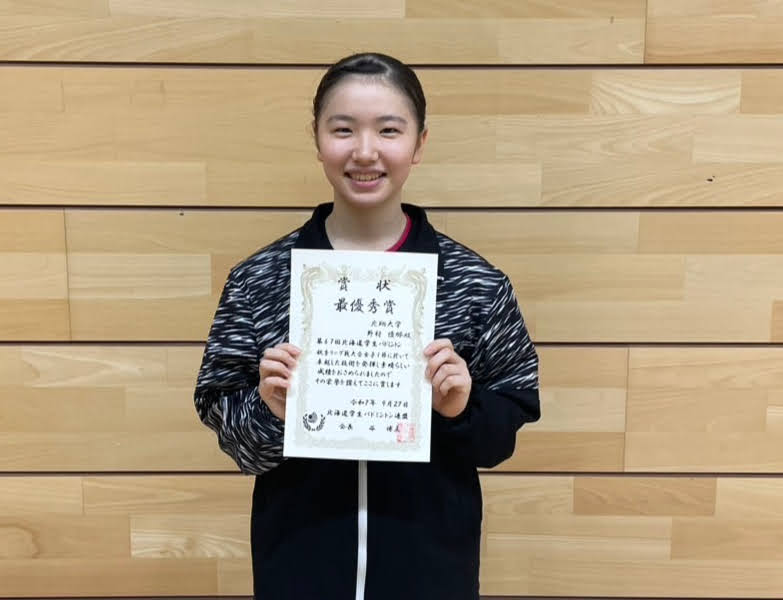 賞状
最優秀賞
北翔大学
野村
第67回北海道学生バドミントン
秋季リーグ戦大会女子1部に於いて
卓越した技術を発揮し素晴らしい
成績をおさめられましたので
その栄誉を讃えてここに賞します
令和7年 9月27日
北海道学生バドミントン連盟
会長